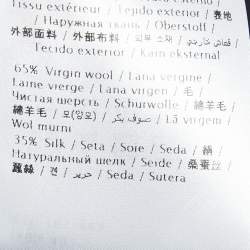 Tissu extérieur / Tejido exterior / 表地
/ Наружная ткань / Oberstoff /
外部面料 / 外部布料 / 외부 소재 / قماش خارجي /
Tecido exterior / Kain eksternal
65% Virgin wool / Lana vergine /
Laine vierge / Lana virgen / 毛 /
Чистая шерсть / Schurwolle / 綿羊毛 /
綿羊毛 / 모(양모) / صوف بكر / Lã virgem /
Wol murni
35% Silk / Seta / Soie / Seda / 絹 /
Натуральный шелк / Seide / 桑蚕丝 /
蠶絲 / 견 / حرير / Seda / Sutera